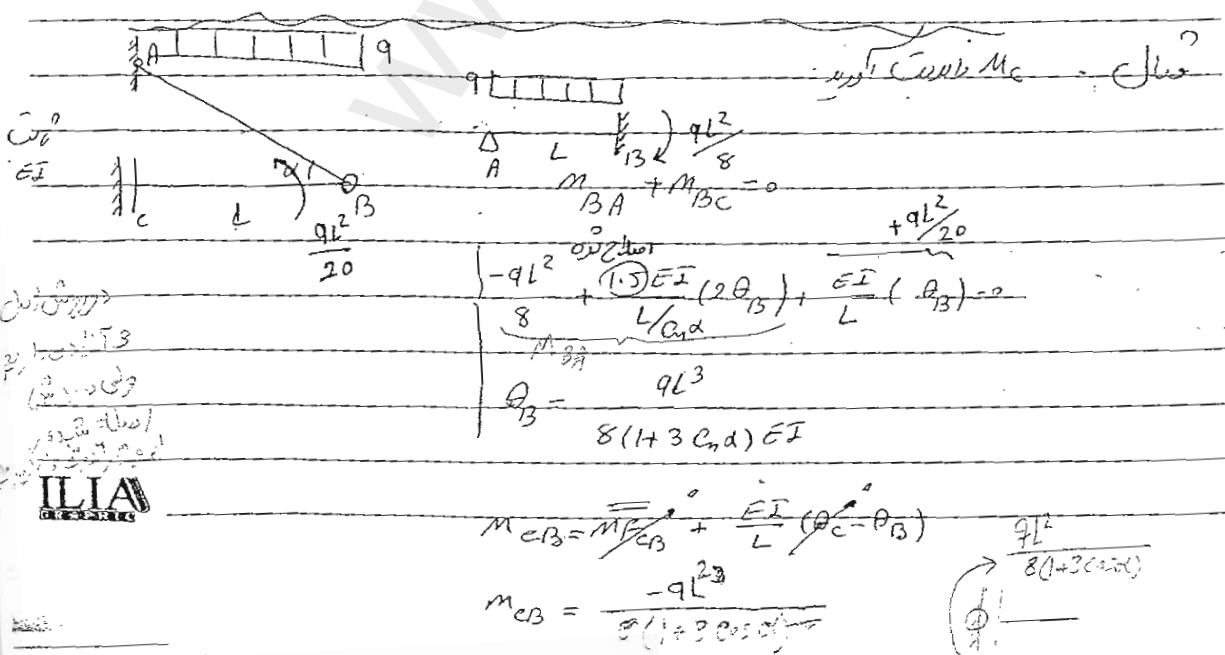 مثال . Mc بدست آورید
A q
q
L
A B qL²/8
ثابت
EI
C L α B
qL²/20
M_BA + M_BC = 0
+qL²/20
اصلاح شده
-qL²/8 + 1.5EI/(L/Cosα) (2θ_B) + EI/L (θ_B) = 0
M_BA
θ_B = qL³ / 8(1+3Cosα)EI
ILIA
GRAPHIC
M_CB = MF_CB + EI/L (θ_C - θ_B)
0 0
qL² / 8(1+3Cosα)
M_CB = -qL² / 8(1+3Cosα)